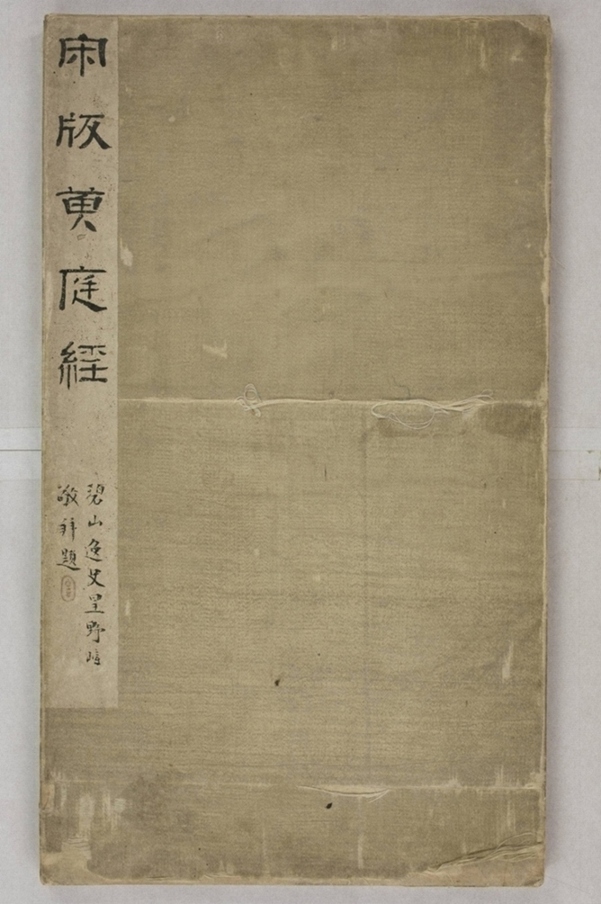 宋版黄庭經
碧山逸史星野
敬拜題